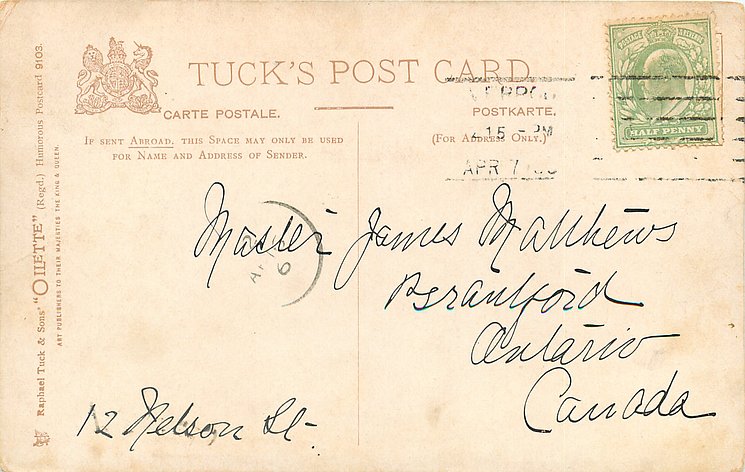 TUCK'S POST CARD
CARTE POSTALE.
POSTKARTE.
IF SENT ABROAD, THIS SPACE MAY ONLY BE USED
FOR NAME AND ADDRESS OF SENDER.
(FOR ADDRESS ONLY.)
HALF PENNY
15 - PM
APR 7
Raphael Tuck & Sons' "OILETTE" (Regd.) Humorous Postcard 9103.
ART PUBLISHERS TO THEIR MAJESTIES THE KING & QUEEN.
Master James Matthews
Brantford
Ontario
Canada
12 Nelson St-